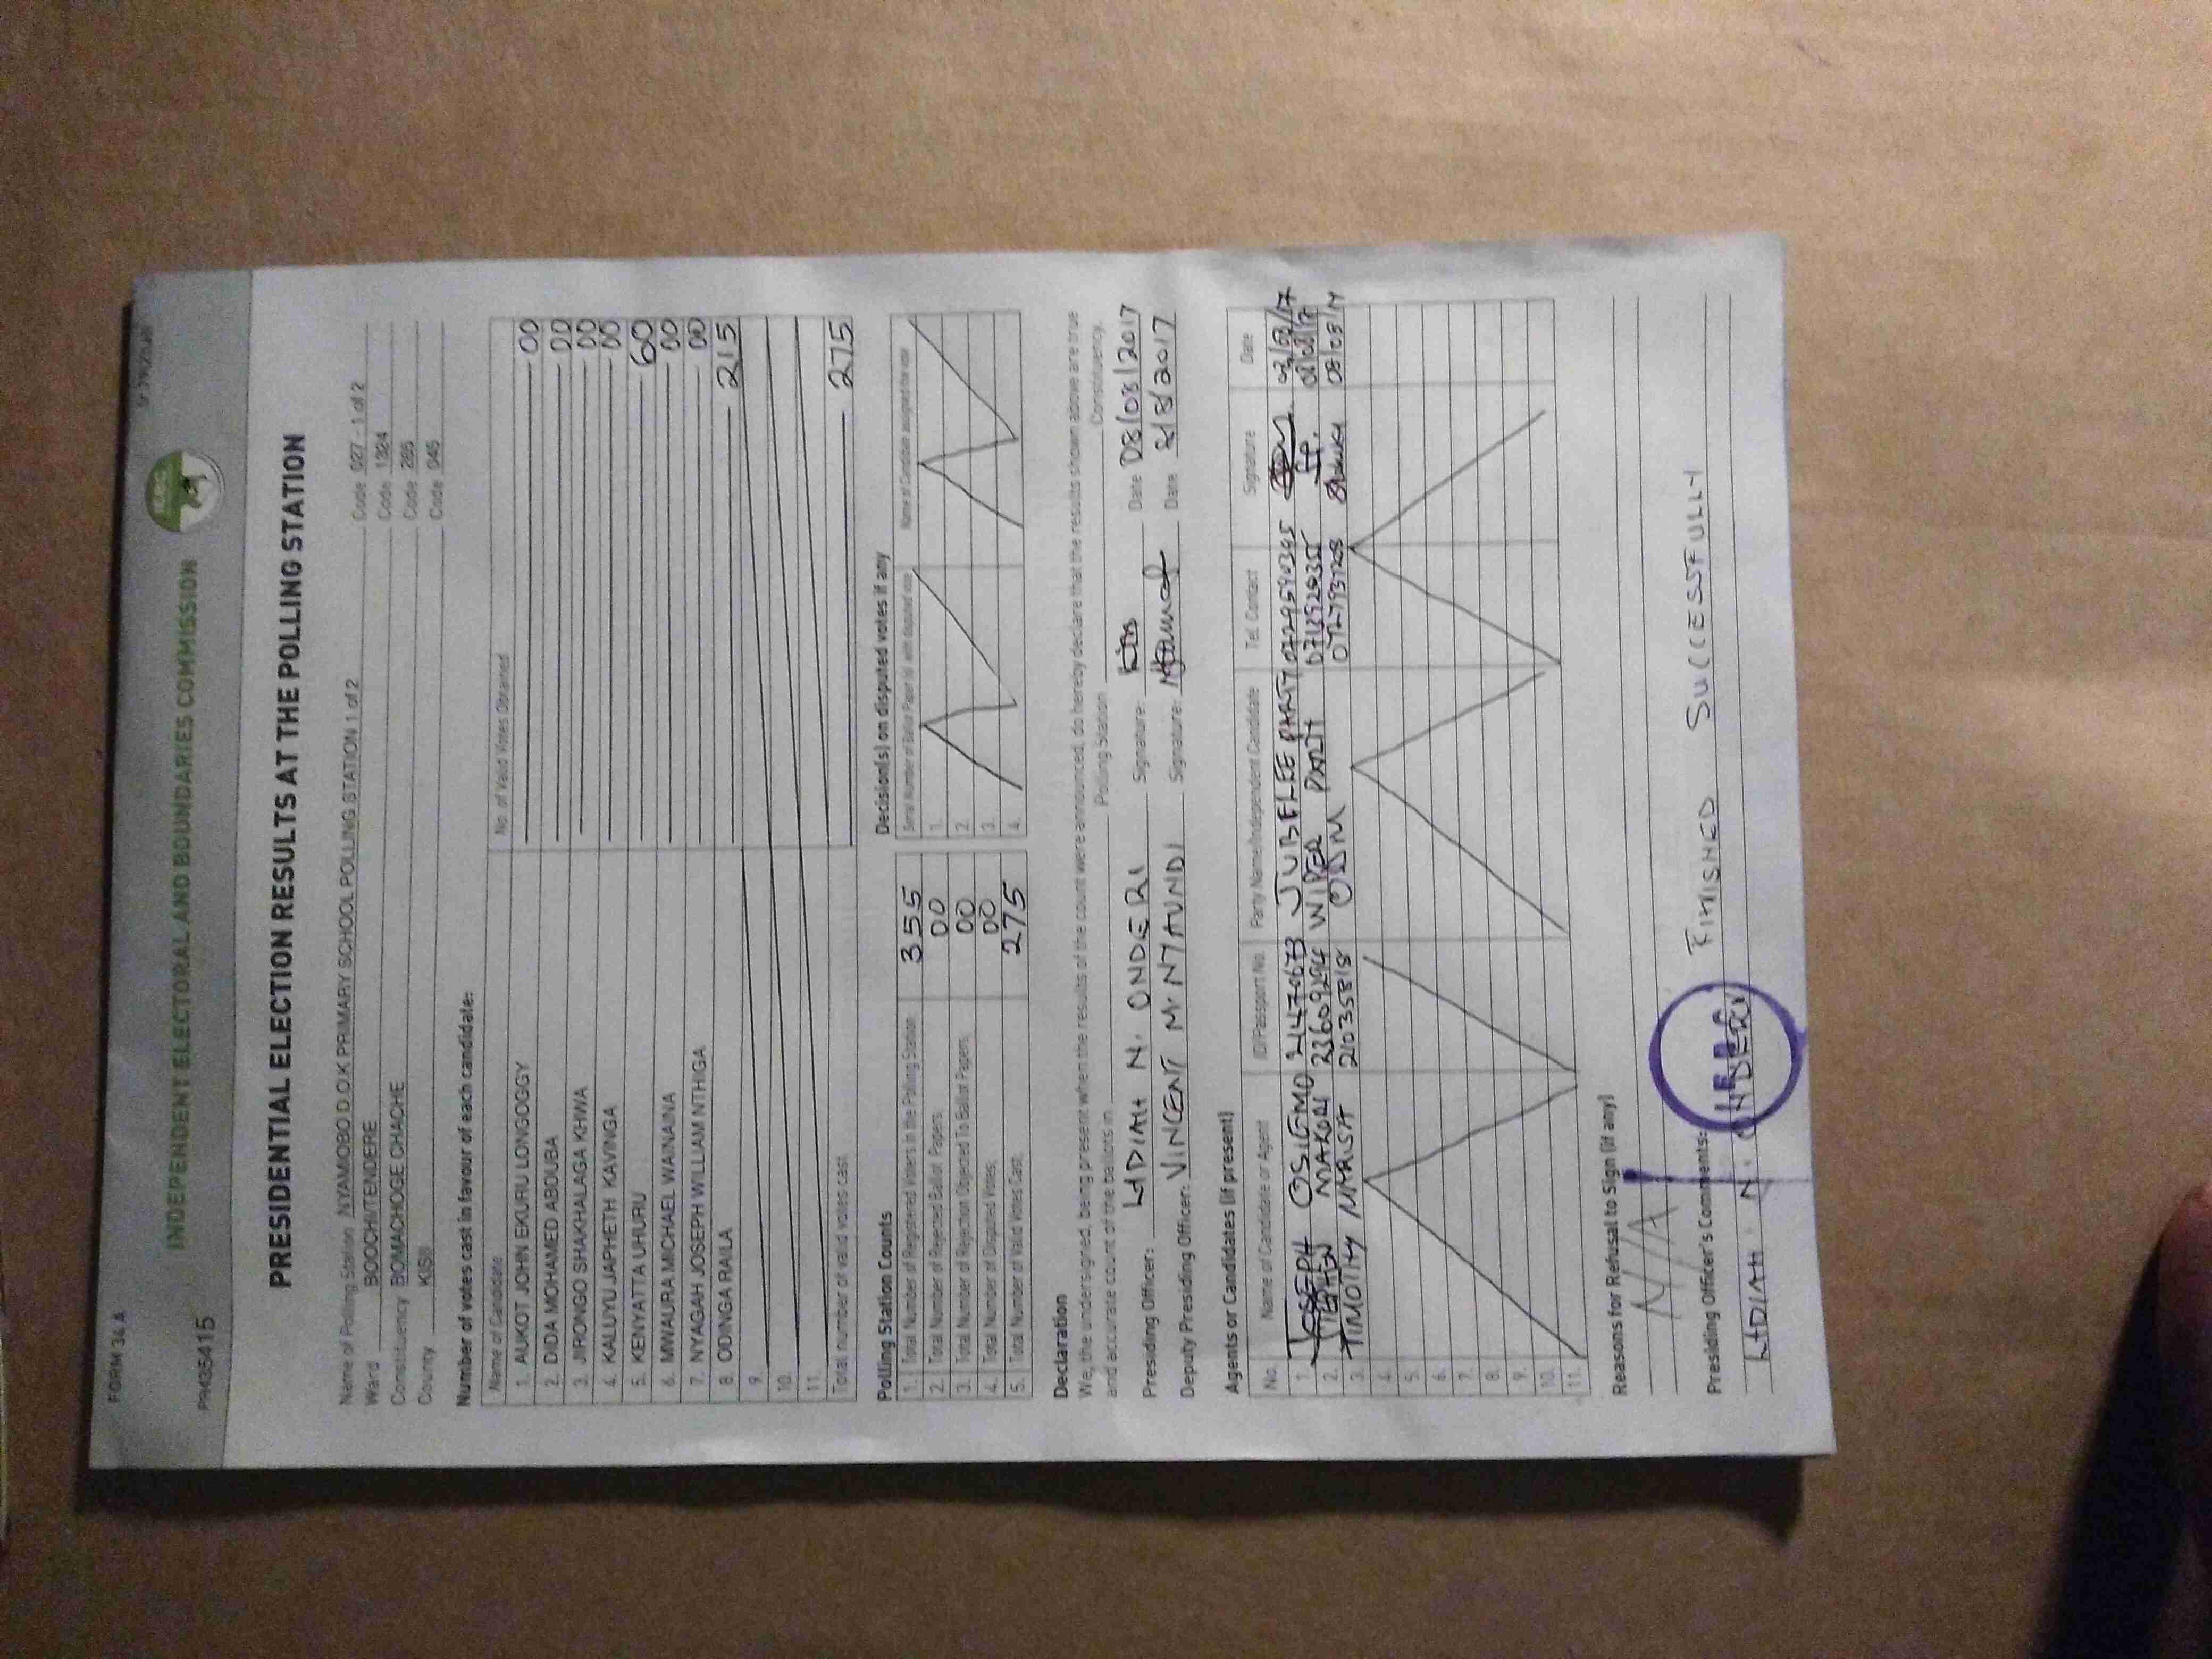 FORM 34 A
INDEPENDENT ELECTORAL AND BOUNDARIES COMMISSION
PH435415
PRESIDENTIAL ELECTION RESULTS AT THE POLLING STATION
Name of Polling Station NYAMIOBO D.O.K PRIMARY SCHOOL POLLING STATION 1 of 2 Code 027 - 1 of 2
Ward BOOCHI/TENDERE Code 1324
Constituency BOMACHOGE CHACHE Code 265
County KISII Code 045
Number of votes cast in favour of each candidate:
Name of Candidate No. of Valid Votes Obtained
1. AUKOT JOHN EKURU LONGOGGY 00
2. DIDA MOHAMED ABDUBA 00
3. JIRONGO SHAKHALAGA KHWA 00
4. KALUYU JAPHETH KAVINGA 00
5. KENYATTA UHURU 60
6. MWAURA MICHAEL WAINAINA 00
7. NYAGAH JOSEPH WILLIAM NTHIGA 00
8. ODINGA RAILA 215
9.
10.
11.
Total number of valid votes cast 275
Polling Station Counts
1. Total Number of Registered Voters in the Polling Station 355
2. Total Number of Rejected Ballot Papers 00
3. Total Number of Rejection Objected To Ballot Papers 00
4. Total Number of Disputed Votes 00
5. Total Number of Valid Votes Cast 275
Decision(s) on disputed votes if any
Serial Number of Ballot Paper (s) with disputed vote Name of Candidate assigned the vote
1.
2.
3.
4.
Declaration
We, the undersigned, being present when the results of the count were announced, do hereby declare that the results shown above are true
and accurate count of the ballots in Polling Station Constituency.
Presiding Officer: LYDIAH N. ONDERI Signature: Date 08/08/2017
Deputy Presiding Officer: VINCENT M. NYAUNDI Signature: Date 8/8/2017
Agents or Candidates (if present)
No. Name of Candidate or Agent ID/Passport No. Party Name/Independent Candidate Tel. Contact Signature Date
1. JOSEPH OSIEMO 21470673 JUBELEE PARTY
2. MAKORI WIPER PARTY
3. TIMOTHY 21035818 ODM 08/08/17
4.
5.
6.
7.
8.
9.
10.
11.
Reasons for Refusal to Sign (if any)
N/A
Presiding Officer's Comments: FINISHED SUCCESSFULLY
LYDIAH N. ONDERI